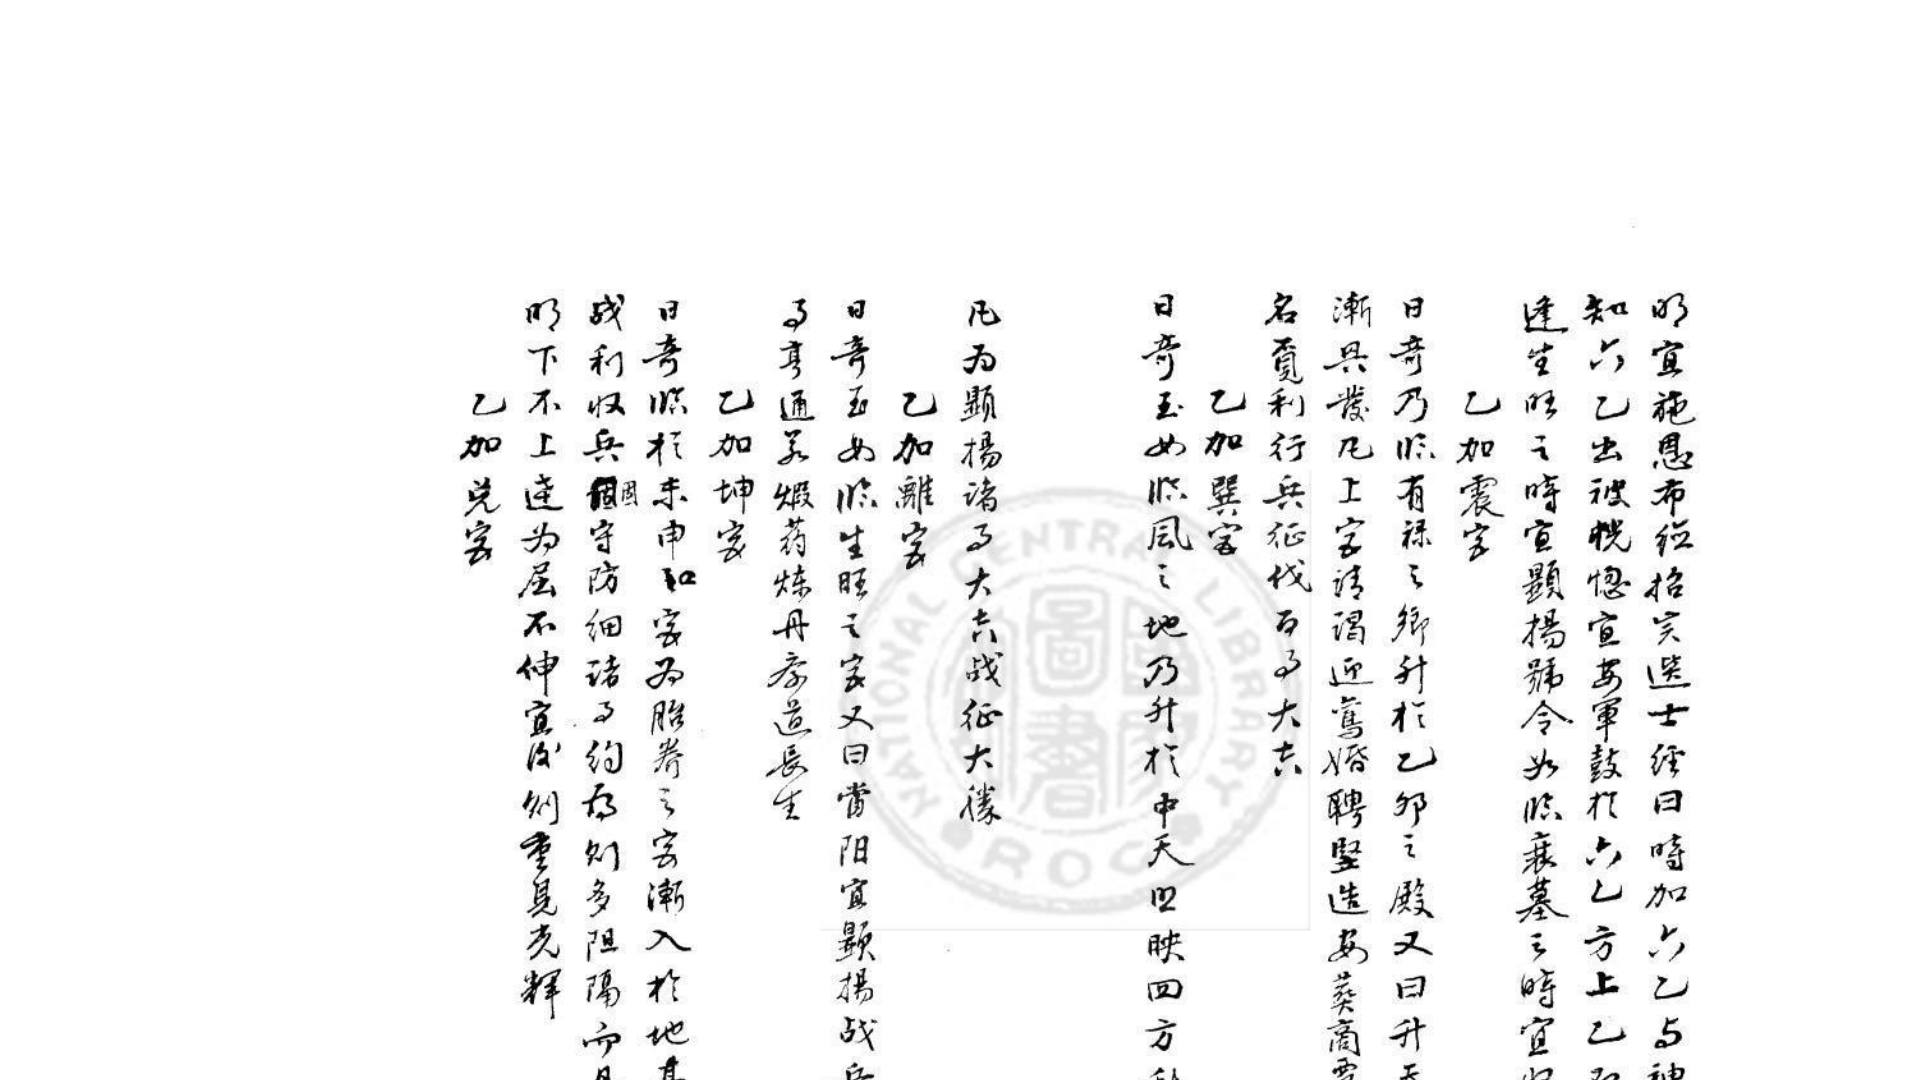 明宜施恩布德招賢選士經曰時加六乙与神
知六乙出被恍惚宜安軍鼓於六乙方上乙
逢生旺之時宜顯揚號令如臨衰墓之時宜
乙加震宮
日奇乃臨有祿之鄉升於乙卯之殿又曰升天
漸具發凡上官請謁迎鸞婚聘竪造安葬商賈
名覓利行兵征伐百事大吉
乙加巽宮
日奇玉女臨風之地乃升於中天照映四方
凡為顯揚諸事大吉战征大勝
乙加離宮
日奇玉女臨生旺之宮又曰當阳宜顯揚战兵
事亨通若煅药炼丹存道長生
乙加坤宮
日奇臨於未申和宮为胎养之宮漸入於地
战利收兵固守防细諸事约为则多阻隔而
明下不上達为屈不伸宜後则重見光輝
乙加兌宮
NATIONAL CENTRAL LIBRARY
ROC
國家圖書